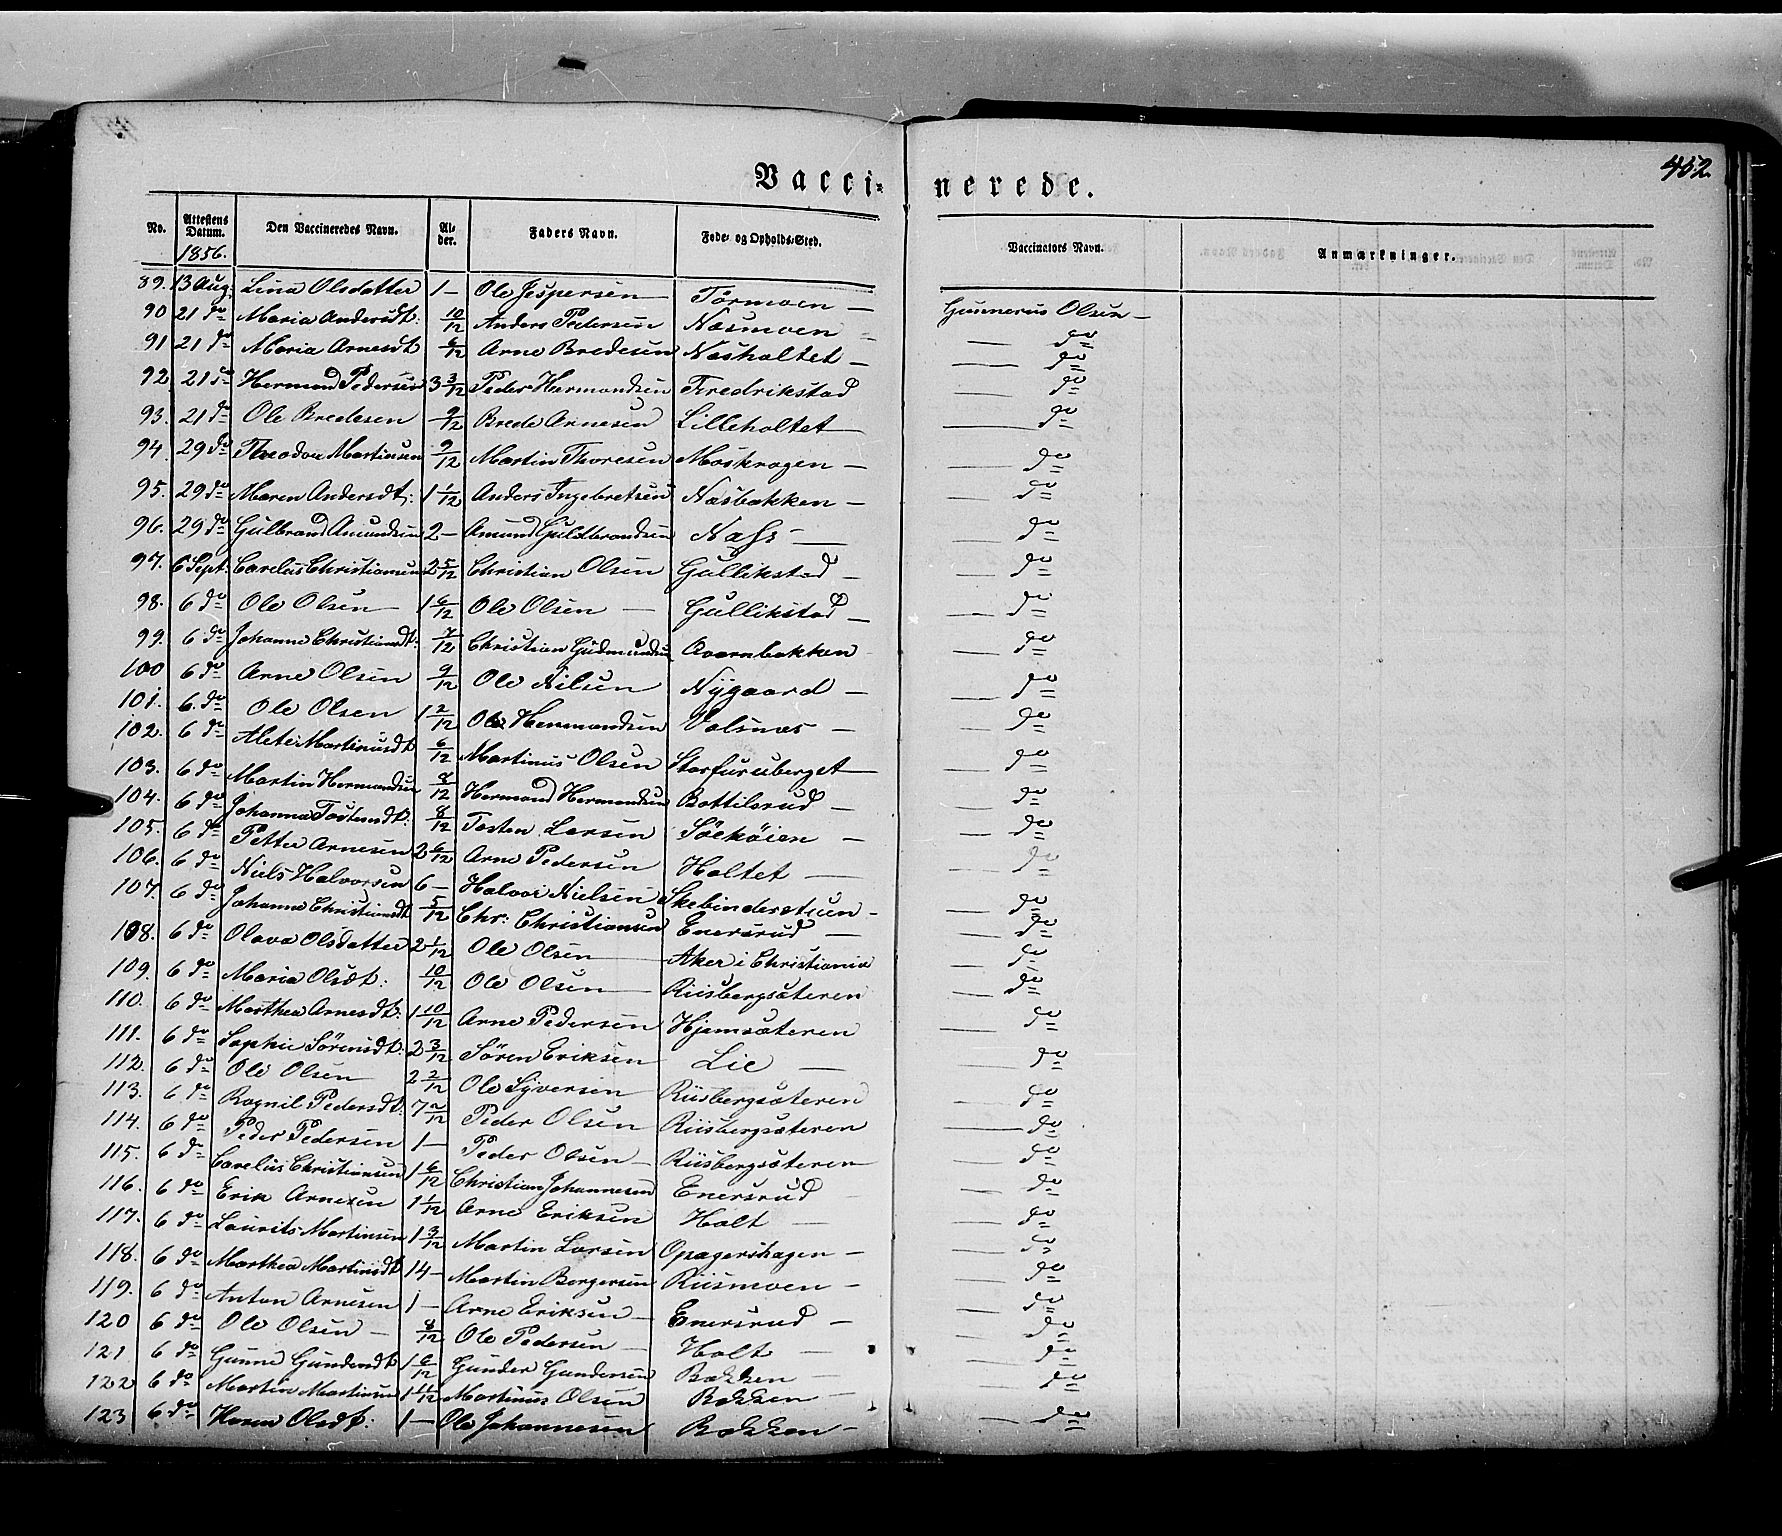 452.
Vacci- nerede.
No. Attestens Datum. 1856. Den Vaccineredes Navn. Al- der. Faders Navn. Føde- og Opholds-Sted. Vaccinators Navn. Anmærkninger.
89. 13 Aug: Lina Olsdatter 1 — Ole Jespersen Tørmoen — Gunnerus Olsen —
90 21 do Maria Andersdt: 10/12 Anders Pedersen Næsmoen — do
91 21 do Maria Arnesdt 6/12 Arne Bredesen Næsholtet — — do
92 21 do Hermand Pedersen 3 3/12 Peder Hermandsen Fredrikstad — do
93. 21 do Ole Bredesen 9/12 Brede Arnesen Lilleholtet — — do
94. 29 do Theodor Martinsen 9/12 Martin Thoresen Moskrogen — — do
95. 29 do Maren Andersdt: 1 1/12 Anders Ingebretsen Næsbakken — — do
96. 29 do Gulbrand Amundsen 2 — Amund Guldbrandsen Næss — — do
97. 6 Sept: Carelius Christiansen 2 5/12 Christian Olsen Gullikstad — — do
98. 6 do Ole Olsen — 1 6/12 Ole Olsen — Gullikstad — — do
99. 6 do Johanne Christiansdt: 7/12 Christian Gudmundsen Aaernbakken — do
100 6 do Arne Olsen 9/12 Ole Nilsen Nygaard — — do
101. 6. do Ole Olsen 1 2/12 Ole Hermandsen Valsnæs — — do
102. 6 do Alete Martinusdt 6/12 Martinus Olsen Storfuruberget — — do
103. 6 do Martin Hermandsen 8/12 Hermand Hermandsen Bottilsrud — — do
104. 6 do Johanna Tostensdt: 8/12 Tosten Larsen Söehöien — — do
105. 6 do Petter Arnesen 2 6/12 Arne Pedersen Holtet — — do
106. 6 do Niels Halvorsen 6 — Halvor Nielsen Skebinderstuen — — do
107. 6 do Johanne Christiansdt 5/12 Chr: Christiansen Enersrud — — do
108. 6 do Olava Olsdatter 2 1/12 Ole Olsen — Aker i Christiania — do
109. 6 do Maria Olsdt: 10/12 Ole Olsen — Riisbergsæteren — do
110. 6 do Marthea Arnesdt: 1 10/12 Arne Pedersen Hjemsæteren — do
111. 6 do Sophie Sörensdt: 2 3/12 Sören Eriksen Lie — — do
112. 6 do Ole Olsen 2 2/12 Ole Syversen Riisbergsæteren — do
113. 6 do Ragnil Pedersdt: 7 2/12 Peder Olsen Riisbergsæteren — do
114. 6 do Peder Pedersen 1 — Peder Olsen — Riisbergsæteren — do
115. 6 do Carelius Christiansen 1 6/12 Christian Johannesen Enersrud — — do
116. 6 do Erik Arnesen 1 1/12 Arne Eriksen Holt — — do
117. 6 do Laurits Martinsen 1 3/12 Martin Larsen Opagershagen — — do
118. 6 do Marthea Martinsdt 14 — Martin Borgersen Riismoen — — do
119. 6 do Anton Arnesen 1 — Arne Eriksen — Enersrud — — do
120 6 do Ole Olsen — 8/12 Ole Pedersen — Holt — — do
121 6 do Gunne Gundersdt 1 6/12 Gunder Gundersen Bækken — — do
122 6 do Martin Martinusen 1 11/12 Martinus Olsen Bækken — — do
123 6 do Karen Olsdt: 1 — Ole Johannesen Bækken — — do